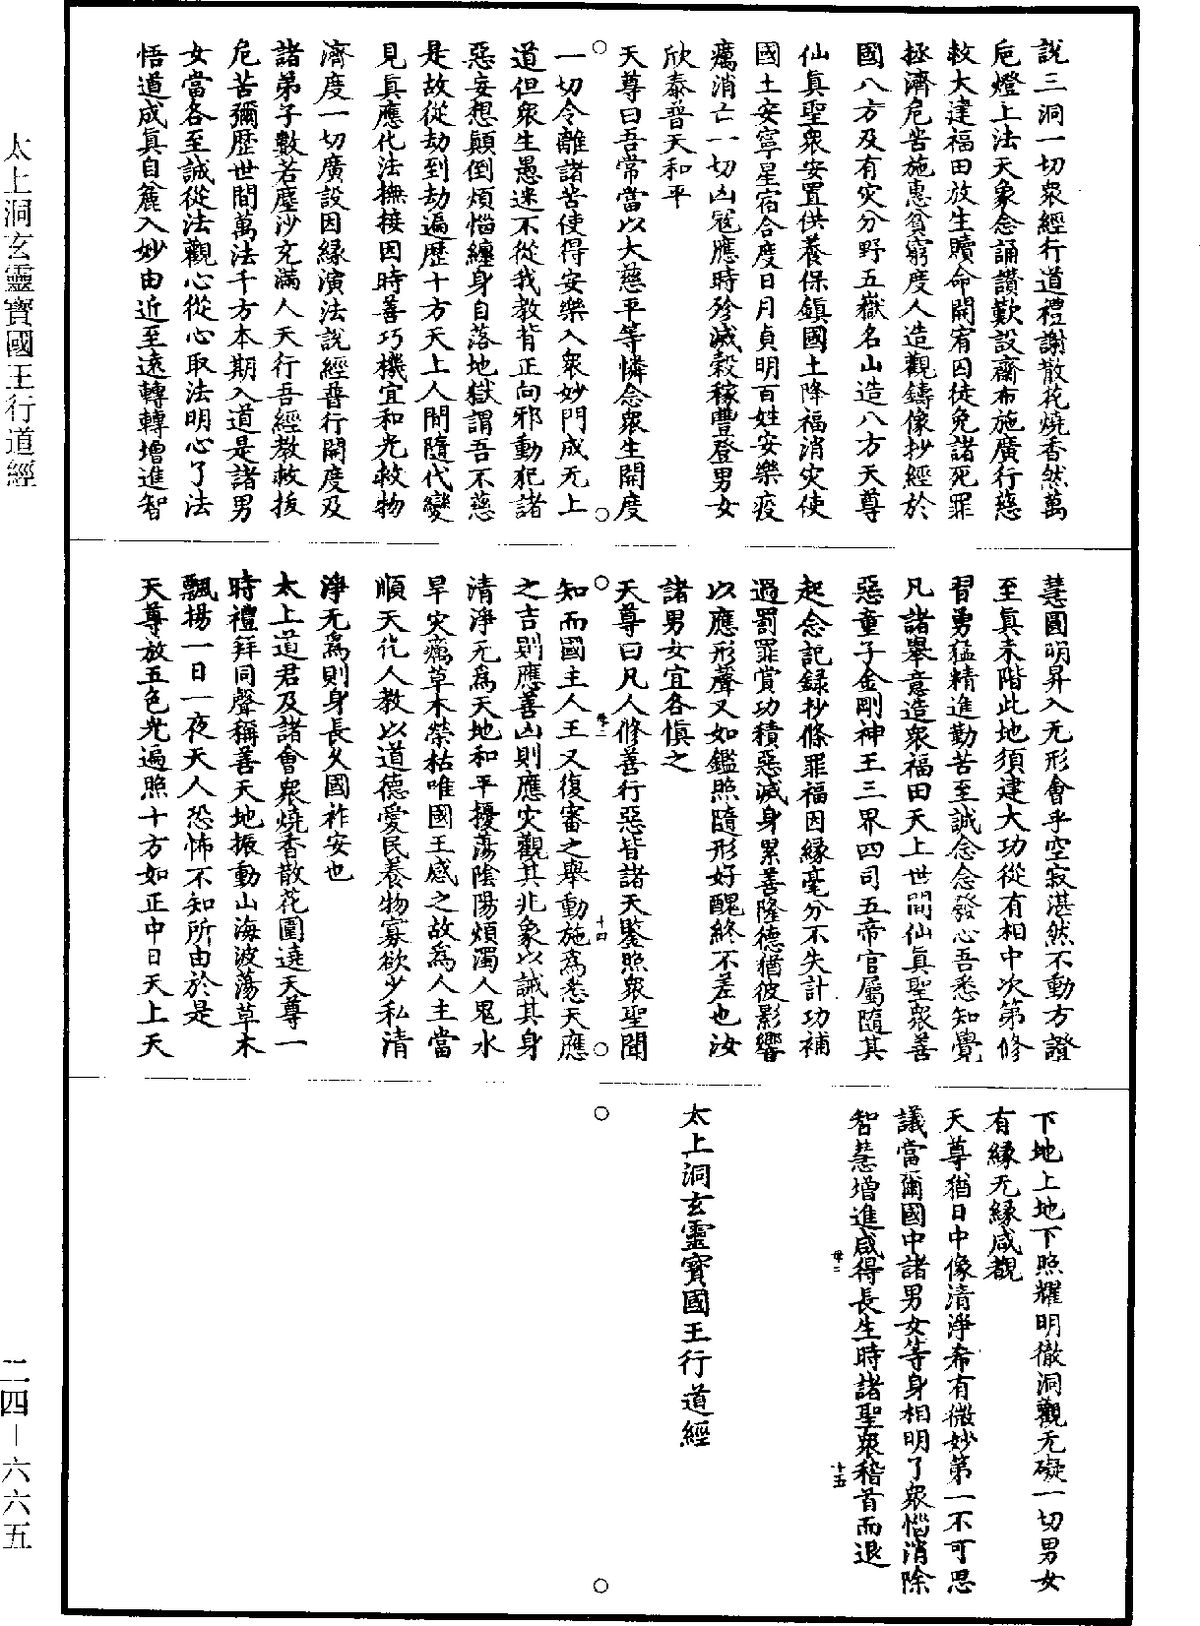 太上洞玄靈寶國王行道經
說三洞一切衆經行道禮謝散花燒香然萬
卮燈上法天象念誦讚歎設齋布施廣行慈
救大建福田放生贖命開宥囚徒免諸死罪
拯濟危苦施惠貧窮度人造觀鑄像抄經於
國八方及有灾分野五嶽名山造八方天尊
仙真聖衆安置供養保鎮國土降福消灾使
國土安寧星宿合度日月貞明百姓安樂疫
癘消亡一切凶寇應時殄滅穀稼豐登男女
欣泰普天和平
天尊曰吾常當以大慈平等憐念衆生開度
一切令離諸苦使得安樂入衆妙門成无上
道但衆生愚迷不從我教背正向邪動犯諸
惡妄想顛倒煩惱纏身自落地獄謂吾不慈
是故從劫到劫遍歷十方天上人間隨代變
見真應化法撫接因時善巧機宜和光救物
濟度一切廣設因緣演法說經普行開度及
諸弟子數若塵沙充滿人天行吾經教救拔
危苦彌歷世間萬法千方本期入道是諸男
女當各至誠從法觀心從心取法明心了法
悟道成真自麄入妙由近至遠轉轉增進智
慧圓明昇入无形會乎空寂湛然不動方證
至真未階此地須建大功從有相中次第修
習勇猛精進勤苦至誠念念發心吾悉知覺
凡諸舉意造衆福田天上世間仙真聖衆善
惡童子金剛神王三界四司五帝官屬隨其
起念記録抄條罪福因緣毫分不失計功補
過罰罪賞功積惡滅身累善隆德猶彼影響
以應形聲又如鑑照隨形好醜終不差也汝
諸男女宜各慎之
天尊曰凡人修善行惡皆諸天鑒照衆聖聞
知而國主人王又復審之舉動施爲悉天應
之吉則應善凶則應灾觀其兆象以誡其身
清淨无爲天地和平擾蕩陰陽煩濁人鬼水
旱灾癘草木榮枯唯國王感之故爲人主當
順天化人教以道德愛民養物寡欲少私清
淨无爲則身長久國祚安也
太上道君及諸會衆燒香散花圍遶天尊一
時禮拜同聲稱善天地振動山海波蕩草木
飄揚一日一夜天人恐怖不知所由於是
天尊放五色光遍照十方如正中日天上天
下地上地下照耀明徹洞觀无礙一切男女
有緣无緣咸覩
天尊猶日中像清淨希有微妙第一不可思
議當爾國中諸男女等身相明了衆惱消除
智慧增進咸得長生時諸聖衆稽首而退
太上洞玄靈寶國王行道經
二四－六六五